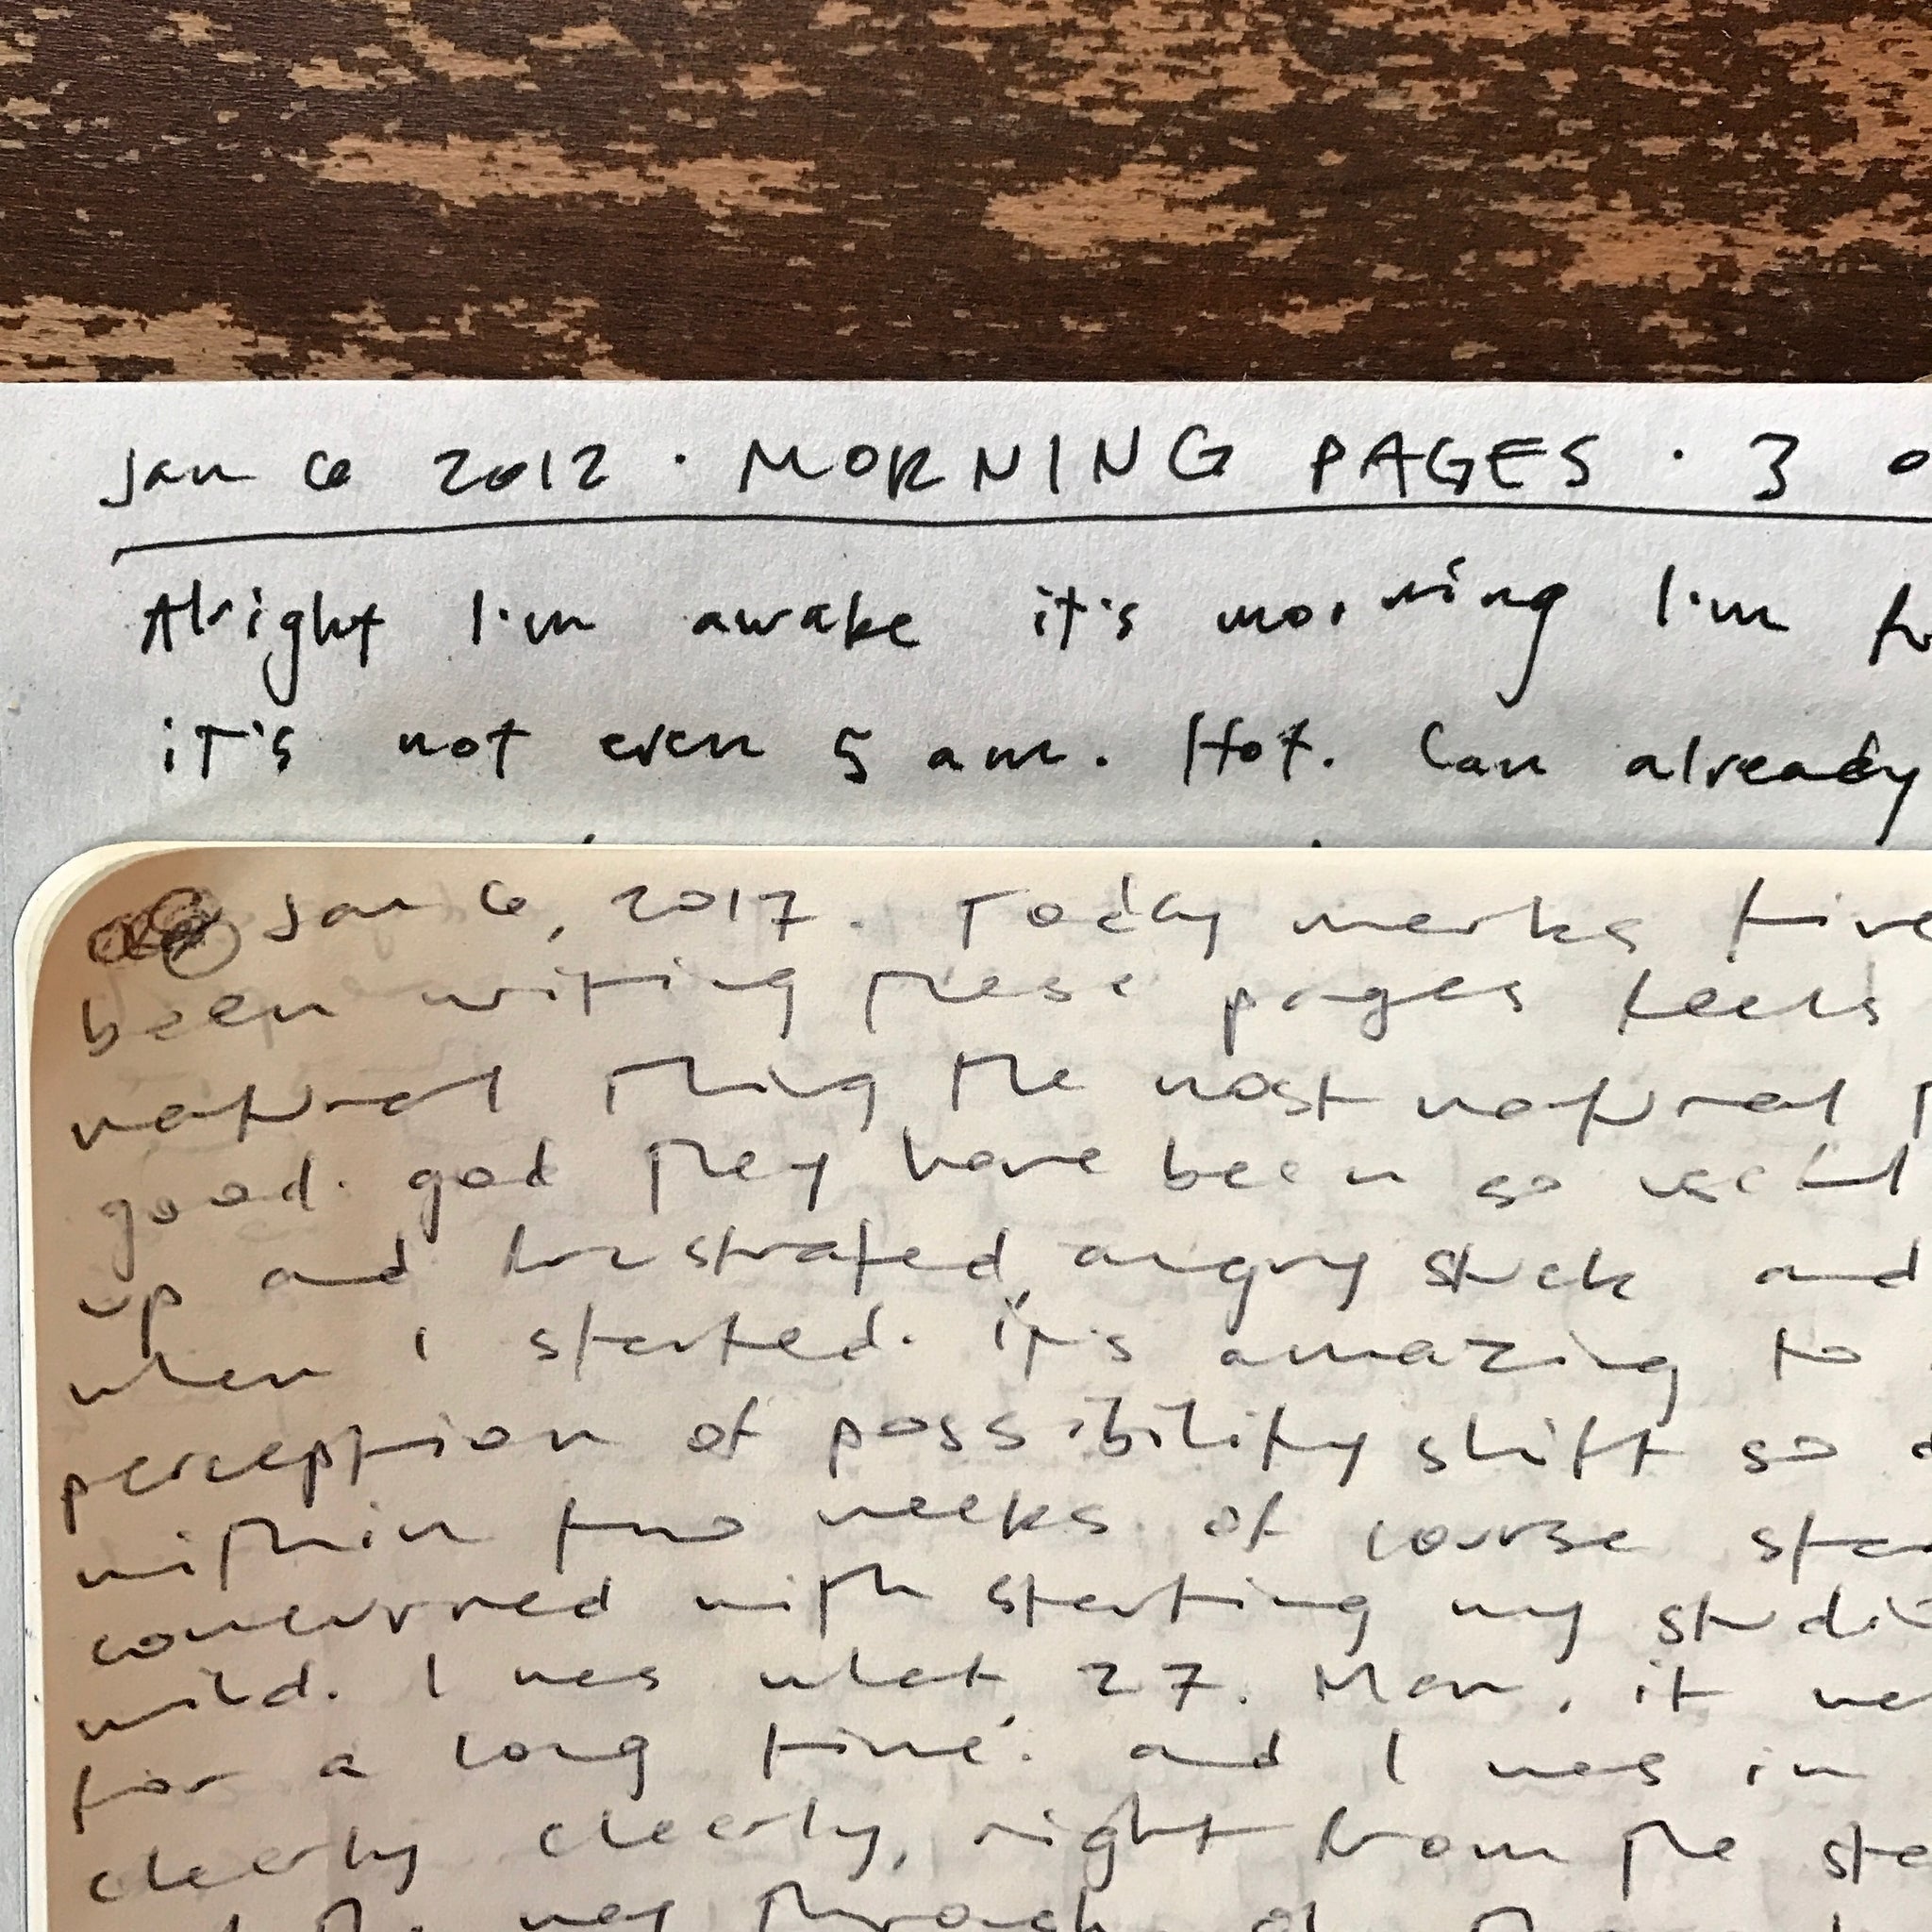 Jan 6 2012 · MORNING PAGES · 3
Alright I'm awake it's morning I'm
it's not even 5 am. Hot. Can already
Jan 6, 2017. Today marks five
been writing these pages feels
natural thing the most natural
good. god they have been so useful
up and frustrated, angry stuck and
when I started. it's amazing to
perception of possibility shift so
within two weeks. of course
concurred with starting my
wild. I was what, 27. Man, it
for a long time. and I was in
clearly clearly, right from the
way through